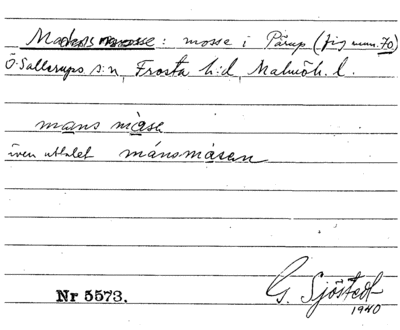 Mads mosse: mosse i Pärup (fig num. 70)
Ö. Sallerups s:n, Frosta h:d, Malmöh. l.
mans mase
även uttalet mánsmåsen
Nr 5573.
G. Sjöstedt
1940